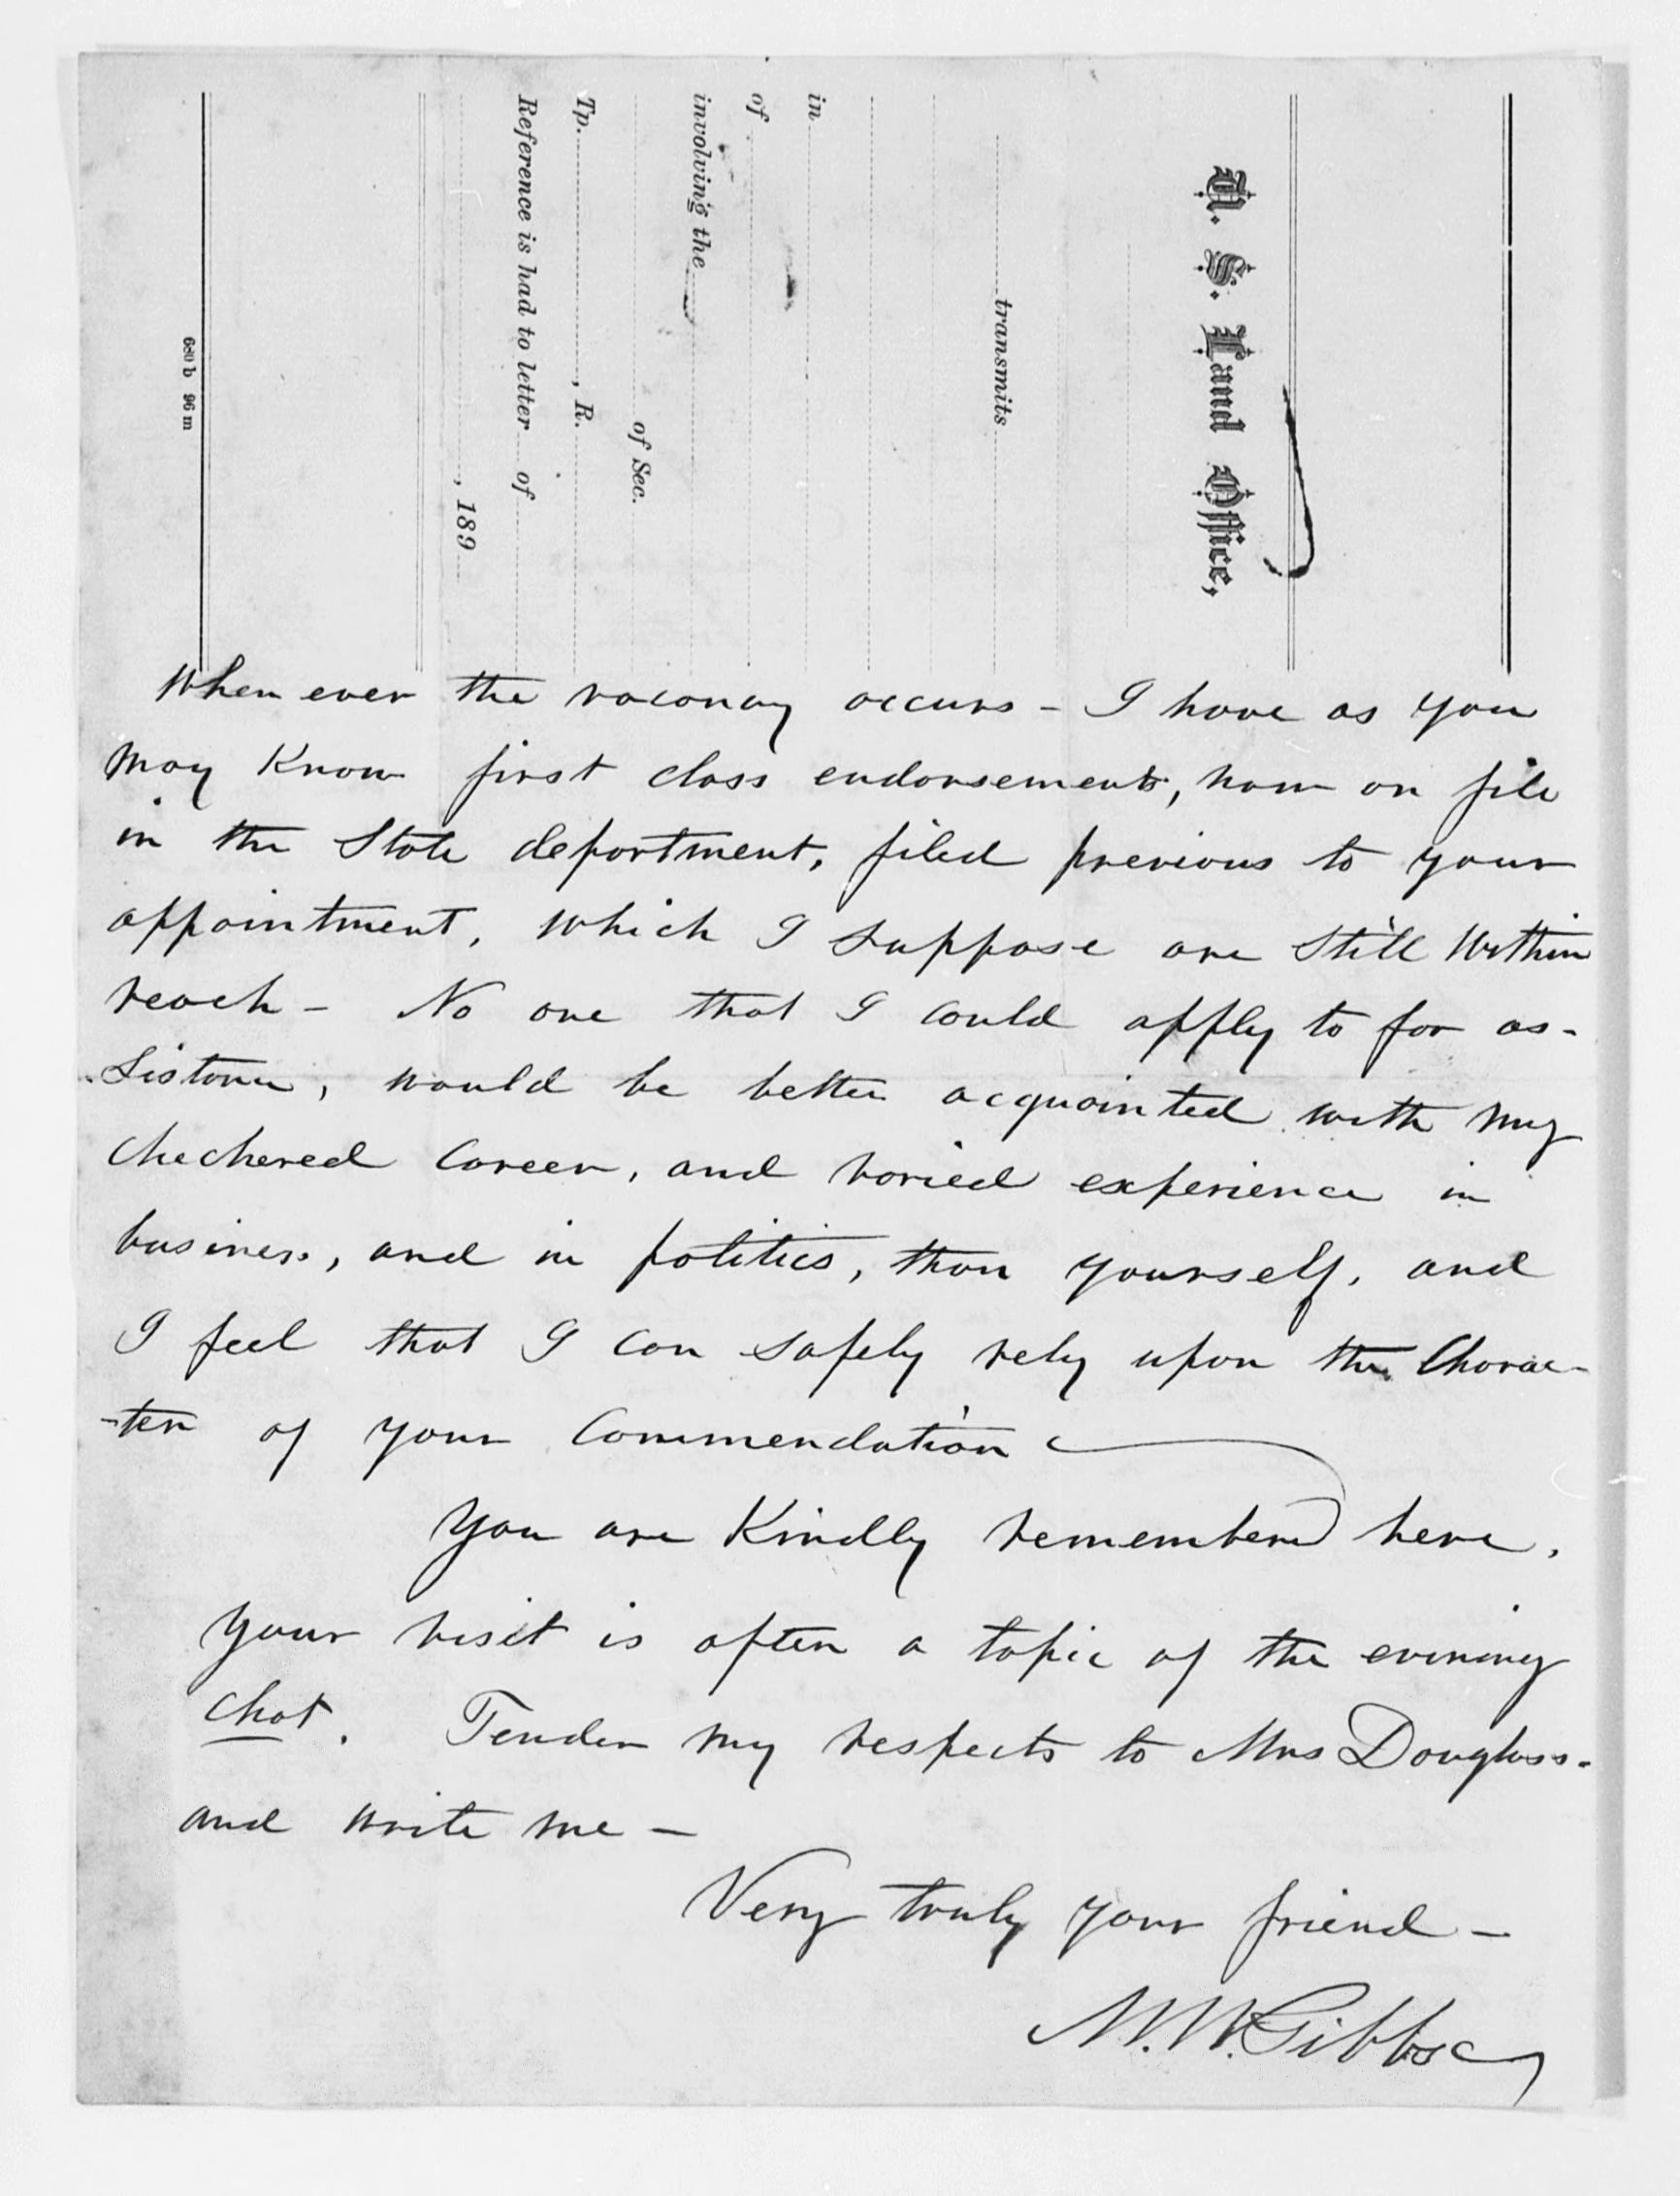 U. S. Land Office,
transmits
in
of
involving the
of Sec.
Tp. , R.
Reference is had to letter of
, 189
680 b 96 m
When ever the vacancy occurs - I have as you
may Know first class endorsements, now on file
in the State department, filed previous to your
appointment, which I suppose are still within
reach - No one that I could apply to for as-
sistance, would be better acquainted with my
checkered career, and varied experience in
business, and in politics, than yourself, and
I feel that I can safely rely upon the Charac-
-ter of your Commendation
You are Kindly remembered here,
your visit is often a topic of the evening
chat. Tender my respects to Mrs Douglass.
and write me -
Very truly your friend -
M. W. Gibbs